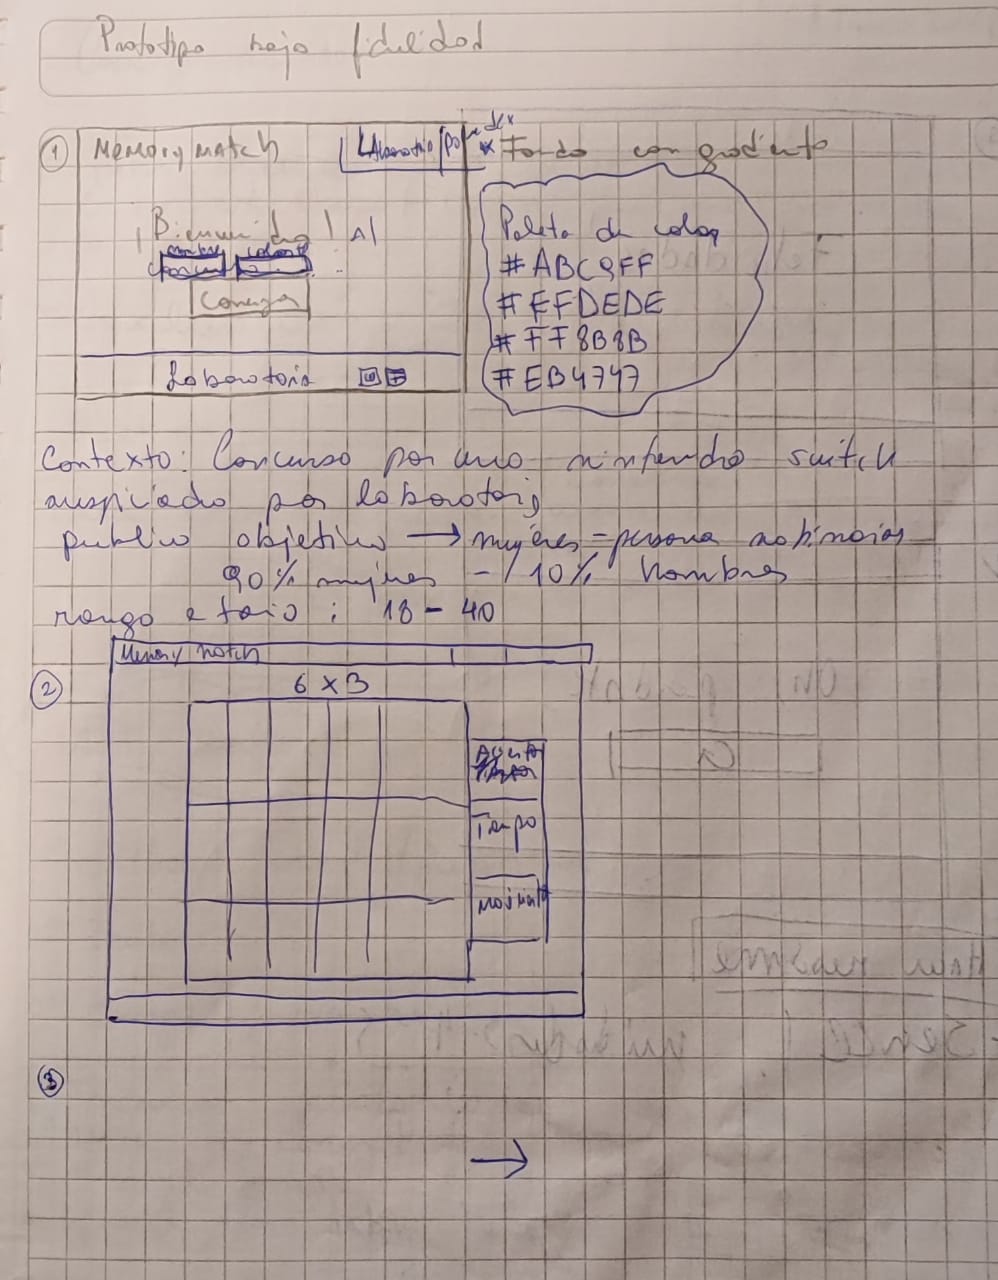 Prototipo baja fidelidad
1
Memory match
Laboratoria
* Fondo con gradiente
¡Bienvenido! Al
Comenzar
Laboratoria
Paleta de color
#ABC9FF
#FFDEDE
#FF8B8B
#EB4747
Contexto: Concurso por una nintendo switch
auspiciado por laboratoria
publico objetivo → mujeres = persona no binarias
90% mujeres - / 10% hombres
rango etario : 18 - 40
2
Memory match
6 x 3
Tiempo
3
→